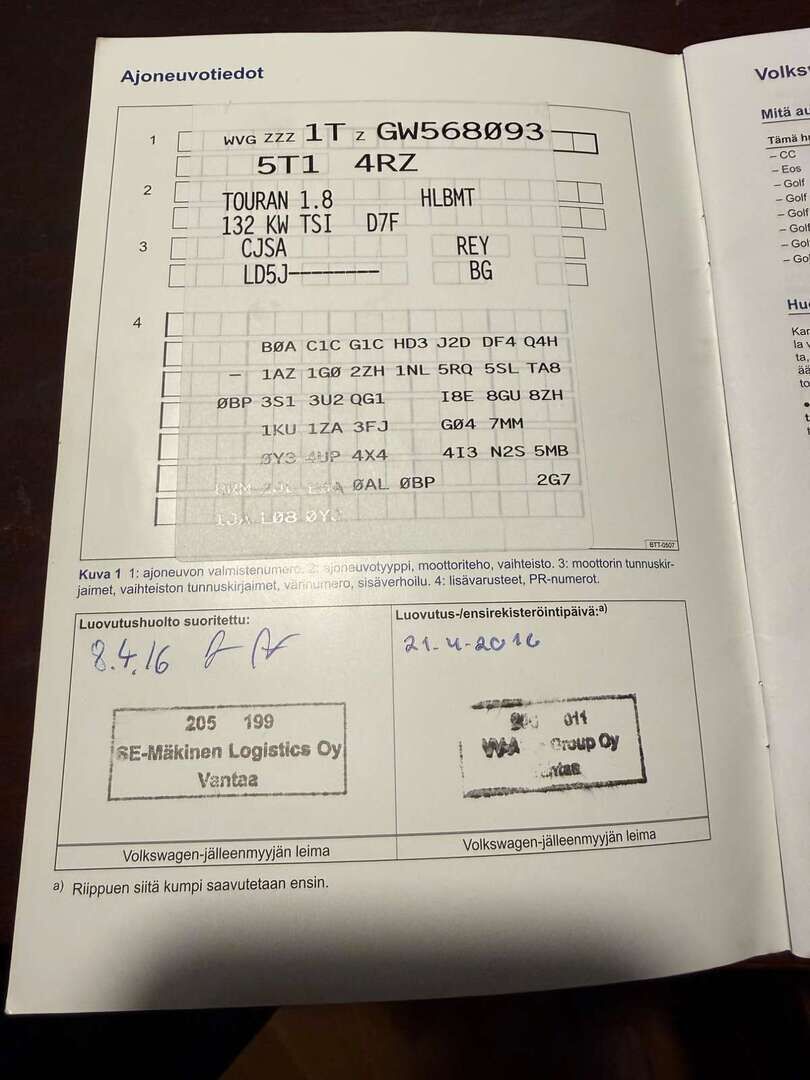 Ajoneuvotiedot
1
WVG ZZZ 1T Z GW568093
5T1 4RZ
2
TOURAN 1.8 HLBMT
132 KW TSI D7F
3
CJSA REY
LD5J-------- BG
4
BØA C1C G1C HD3 J2D DF4 Q4H
– 1AZ 1GØ 2ZH 1NL 5RQ 5SL TA8
ØBP 3S1 3U2 QG1 I8E 8GU 8ZH
1KU 1ZA 3FJ GØ4 7MM
ØY3 4UP 4X4 4I3 N2S 5MB
ØAL ØBP 2G7
1JA LØ8
BTT-0507
Kuva 1 1: ajoneuvon valmistenumero. 2: ajoneuvotyyppi, moottoriteho, vaihteisto. 3: moottorin tunnuskir-
jaimet, vaihteiston tunnuskirjaimet, värinumero, sisäverhoilu. 4: lisävarusteet, PR-numerot.
Luovutushuolto suoritettu:
8.4.16
205 199
SE-Mäkinen Logistics Oy
Vantaa
Volkswagen-jälleenmyyjän leima
Luovutus-/ensirekisteröintipäivä:a)
21-4-2016
011
Group Oy
Volkswagen-jälleenmyyjän leima
a) Riippuen siitä kumpi saavutetaan ensin.
Volks
Mitä au
Tämä hu
– CC
– Eos
– Golf
– Golf
– Golf
– Golf
– Gol
– Go
Huo
Kar
la v
ta,
ää
to